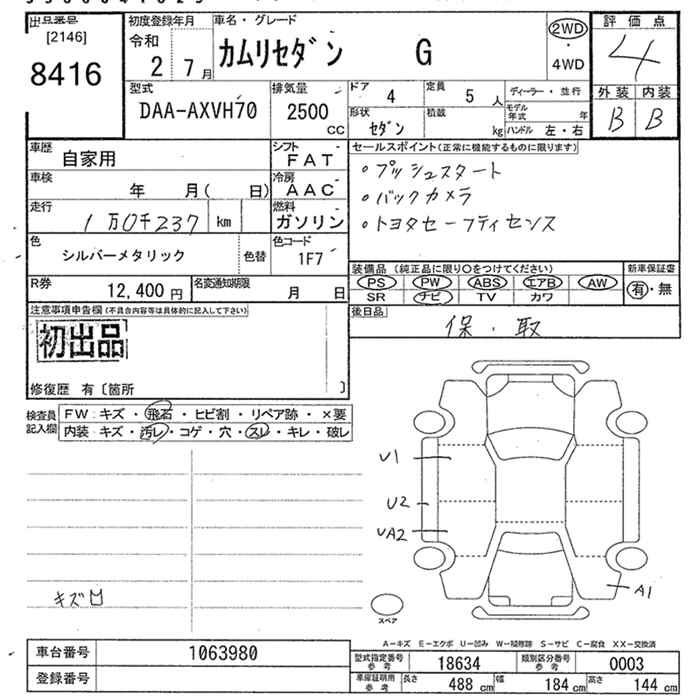 出品番号
[2146]
8416
初度登録年月
令和
2 7月
車名・グレード
カムリセダン G
2WD
・
4WD
評価点
4
外装 内装
B B
型式
DAA-AXVH70
排気量
2500
CC
ドア 4
定員 5 人
ディーラー・並行
形状 セダン
積載 kg
モデル年式 年
ハンドル 左・右
車歴 自家用
シフト FAT
車検 年 月( 日)
冷房 AAC
走行 1万0千237 km
燃料 ガソリン
色 シルバーメタリック
色替
色コード 1F7
R券 12,400円
名変通知期限 月 日
セールスポイント(正常に機能するものに限ります)
・プッシュスタート
・バックカメラ
・トヨタセーフティセンス
装備品 (純正品に限り〇をつけてください)
新車保証書
PS PW ABS エアB AW
有・無
SR ナビ TV カワ
後日品
保・取
注意事項申告欄(不具合内容等は具体的に記入して下さい)
初出品
修復歴 有〔箇所 〕
検査員記入欄
FW:キズ・飛石・ヒビ割・リペア跡・×要
内装:キズ・汚レ・コゲ・穴・スレ・キレ・破レ
U1
U2
UA2
A1
キズ
スペア
A―キズ E―エクボ U―凹み W―補修跡 S―サビ C―腐食 XX―交換済
車台番号 1063980
登録番号
型式指定番号 参考 18634
類別区分番号 参考 0003
車庫証明用 参考 長さ 488cm 幅 184cm 高さ 144cm